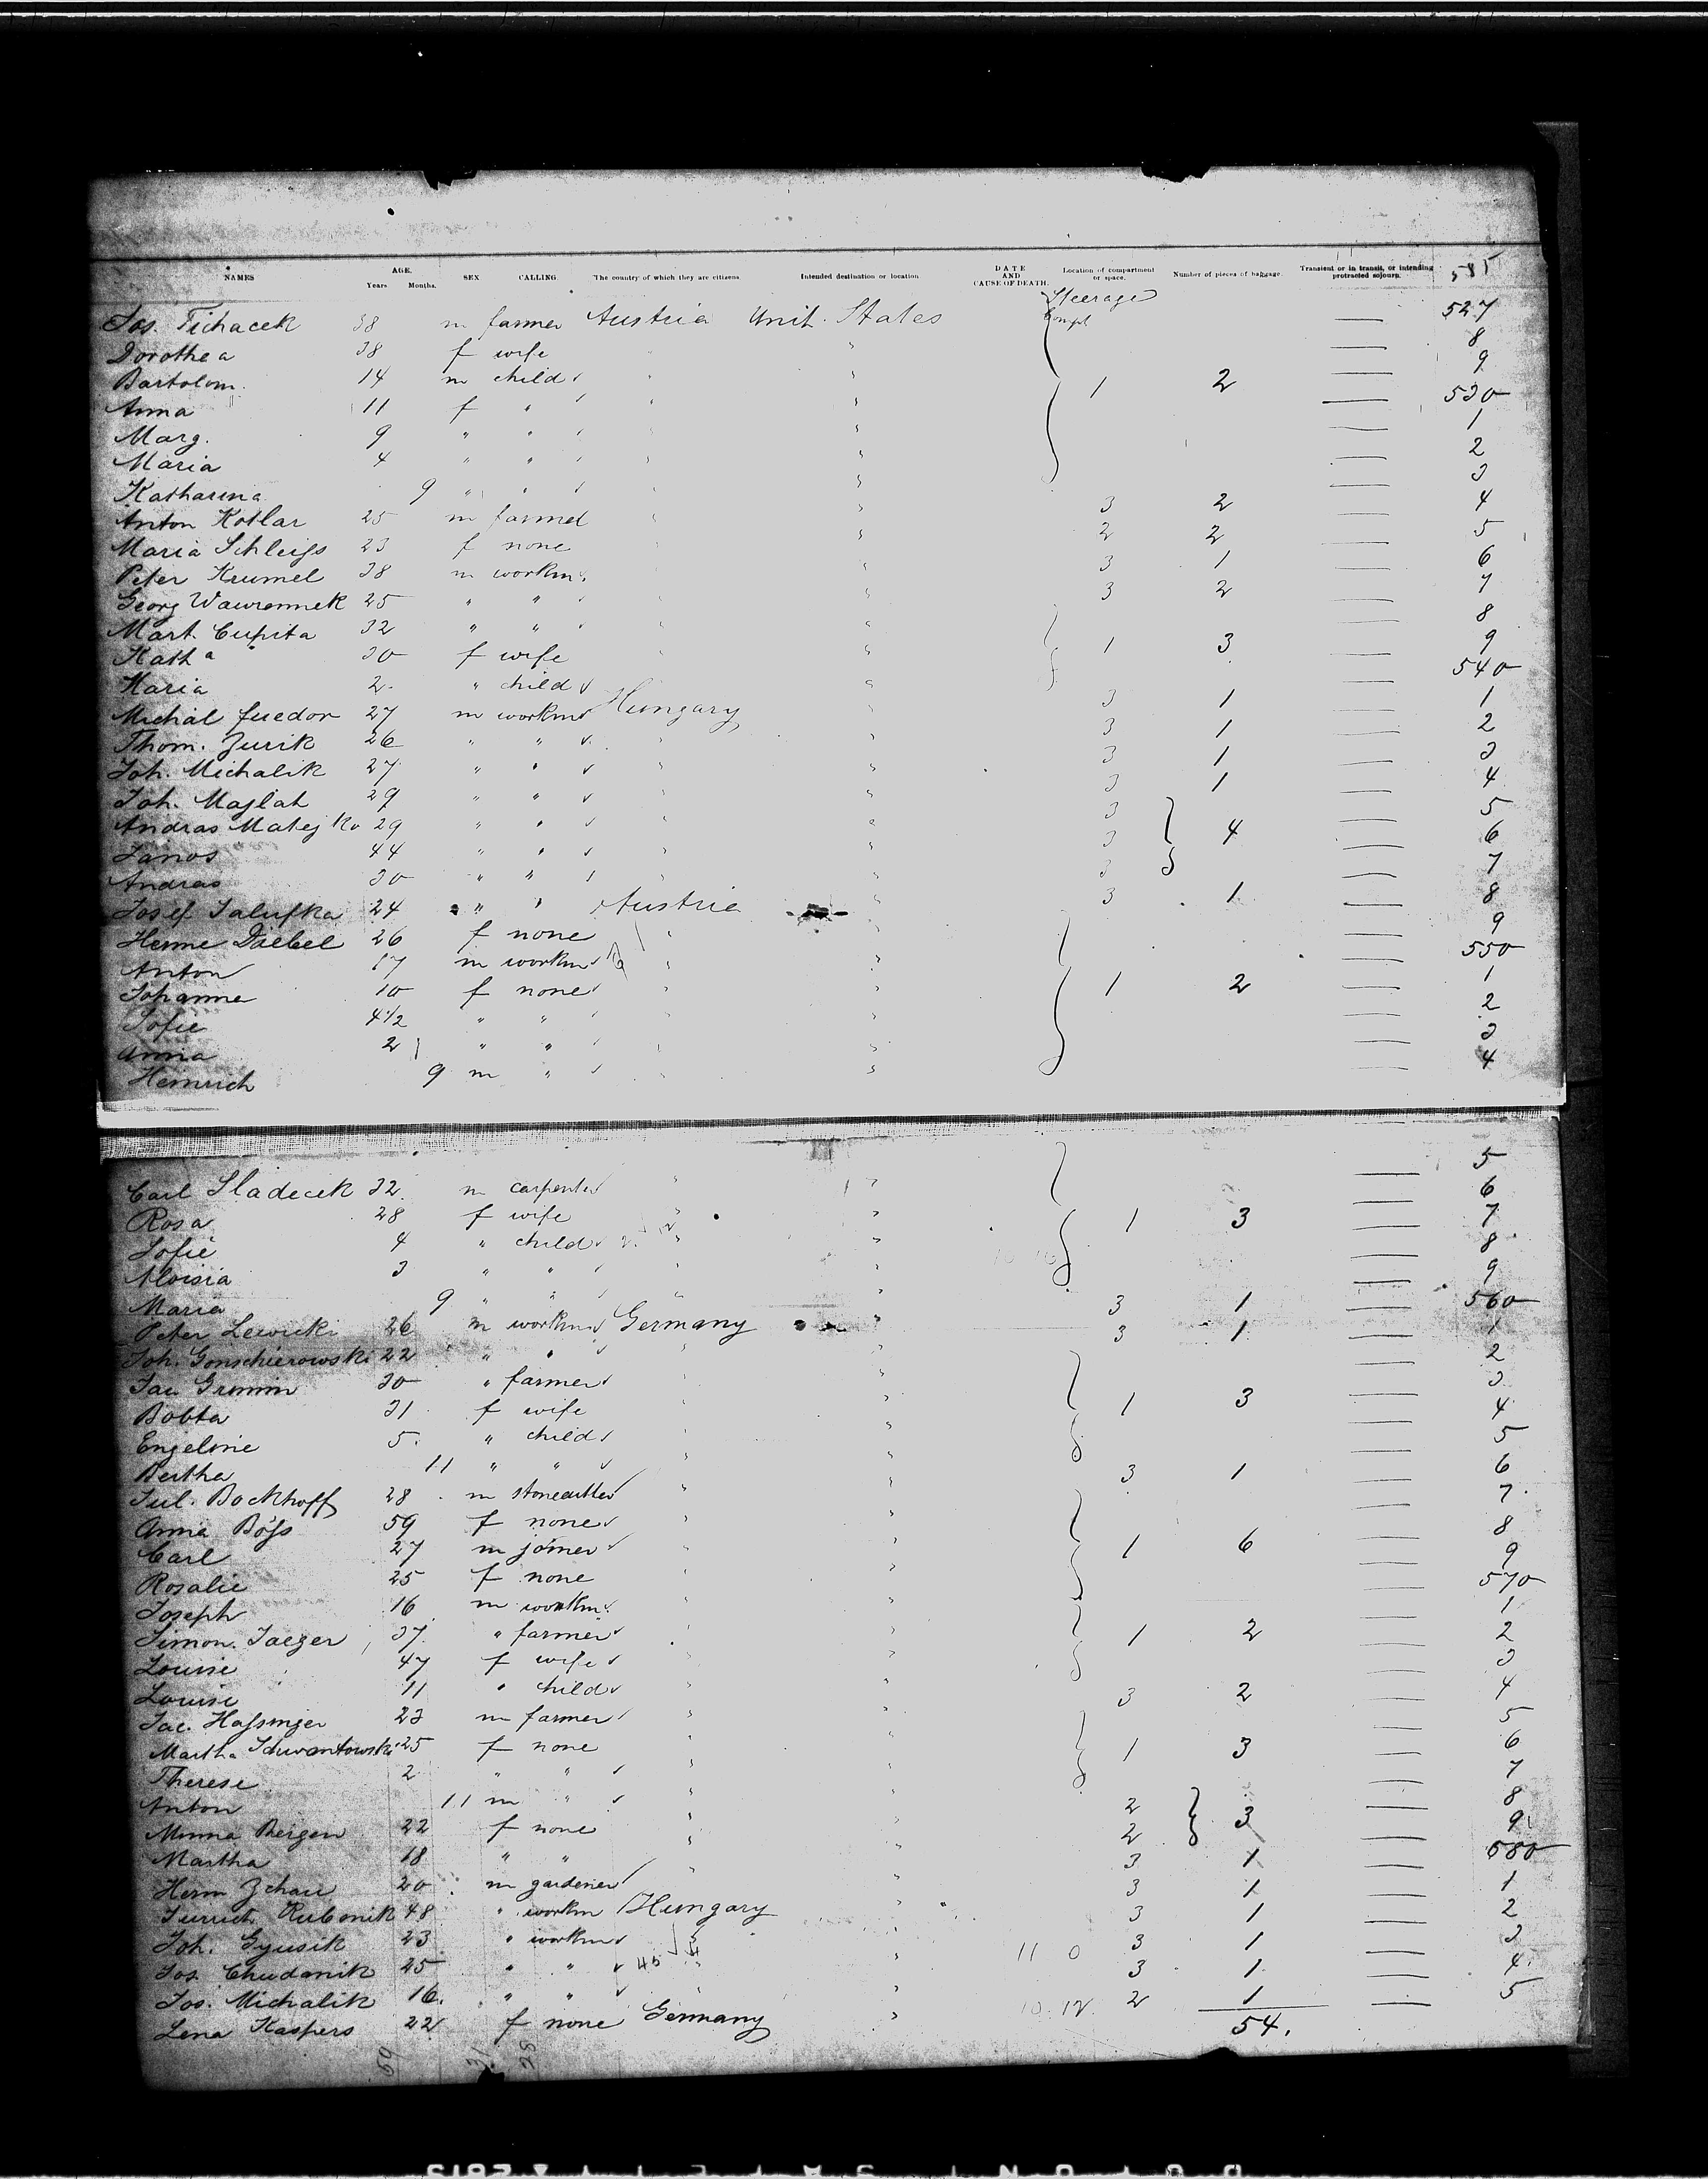 585
NAMES AGE. Years Months. SEX CALLING. The country of which they are citizens. Intended destination or location DATE AND CAUSE OF DEATH. Location of compartment or space. Number of pieces of baggage. Transient or in transit, or intending protracted sojourn.
Steerage
Jos. Tichacek 38 m farmer Austria Unit. States Compt — 527
Dorothea 38 f wife " " — 8
Bartolom. 14 m child " " 1 2 — 9
Anna 11 f " " " — 530
Marg. 9 " " " " — 1
Maria 4 " " " " — 2
Katharina 9 " " " " — 3
Anton Kotlar 25 m farmer " " 3 2 — 4
Maria Schleiss 23 f none " " 2 2 — 5
Peter Krumel 38 m workm. " " 3 1 — 6
Georg Wawrennek 25 " " " " 3 2 — 7
Mart. Cupita 32 " " " " — 8
Katha 30 f wife " " 1 3 — 9
Maria 2 " child " " — 540
Michal 27 m workm Hungary " 3 1 — 1
Thom. Zurik 26 " " " " 3 1 — 2
Joh. Michalik 27 " " " " 3 1 — 3
Joh. Majlat 29 " " " " 3 1 — 4
Andras Matejko 29 " " " " 3 — 5
Janos 44 " " " " 3 4 — 6
Andras 30 " " " " 3 — 7
Josef 24 " " Austria " 3 1 — 8
26 f none " " — 9
Anton 17 m workm " " — 550
Johanna 10 f none " " 1 2 — 1
Sofie 4 1/2 " " " " — 2
Anna 2 " " " " — 3
Heinrich 9 m " " " — 4
Carl Sladecek 32 m carpenter " " — 5
Rosa 28 f wife " " — 6
Sofie 4 " child " " 1 3 — 7
Aloisia 3 " " " " — 8
Maria 9 " " " " — 9
Peter Lewicki 26 m workm Germany " 3 1 — 560
Joh. Gonschierowski 22 " " " " 3 1 — 1
Jac Grimm 30 " farmer " " — 2
Bobta 31 f wife " " 1 3 — 3
Engeline 5 " child " " — 4
Bertha 11 " " " " — 5
Jul. Bockhoff 28 m stonecutter " " 3 1 — 6
Anna Böss 59 f none " " — 7
Carl 27 m joiner " " 1 6 — 8
Rosalie 25 f none " " — 9
Joseph 16 m workm. " " — 570
Simon Jaeger 37 " farmer " " — 1
Louise 47 f wife " " 1 2 — 2
Louise 11 " child " " — 3
Jac. Hassinger 23 m farmer " " 3 2 — 4
Martha 25 f none " " — 5
Therese 2 " " " " 1 3 — 6
Anton 11 m " " " — 7
Minna Bergen 22 f none " " 2 3 — 8
Martha 18 " " " " 2 — 9
Herm 20 m gardener " " 3 1 — 580
Rubonik 48 " workm Hungary " 3 1 — 1
Joh. Gyusik 23 " workm " " 3 1 — 2
Jos. Chudanik 25 " " 45 " " 11 0 3 1 — 3
Jos. Michalik 16 " " " " 3 1 — 4
Lena Kaspers 22 f none Germany " 10. 12. 2 1 — 5
54.
59 31 28